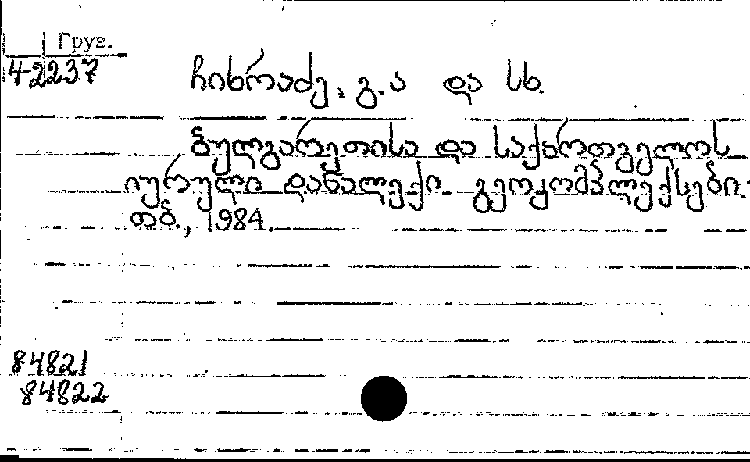 Груз.
42237
ჩიხრაძე, გ.ა და სხ.
ბულგარეთისა და საქართველოს
იურული დანალექი გეოკომპლექსები.
თბ., 1984.
84821
84822